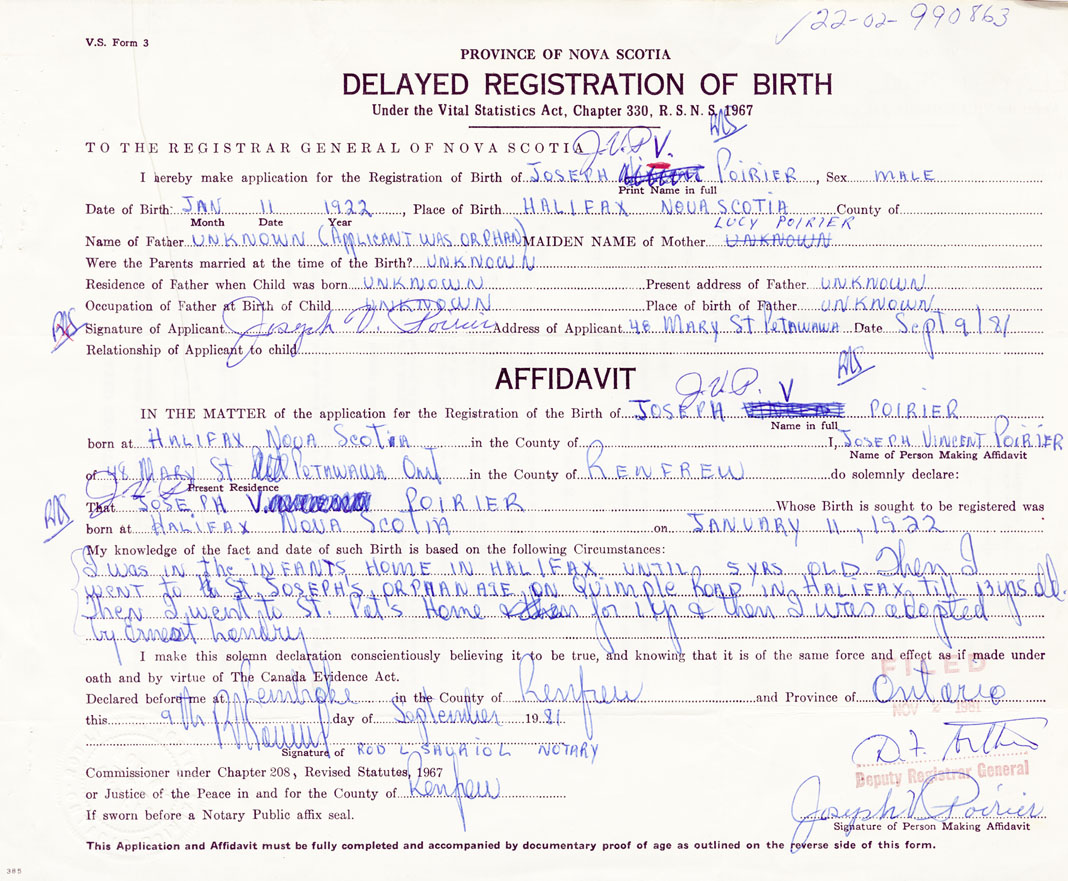 22-02-990863
V.S. Form 3
PROVINCE OF NOVA SCOTIA
DELAYED REGISTRATION OF BIRTH
Under the Vital Statistics Act, Chapter 330, R.S.N.S. 1967
TO THE REGISTRAR GENERAL OF NOVA SCOTIA J.V.P V.
I hereby make application for the Registration of Birth of JOSEPH POIRIER, Sex MALE
Print Name in full
Date of Birth: JAN 11 1922, Place of Birth HALIFAX NOVA SCOTIA County of
Month Date Year LUCY POIRIER
Name of Father UNKNOWN (APPLICANT WAS ORPHAN) MAIDEN NAME of Mother UNKNOWN
Were the Parents married at the time of the Birth? UNKNOWN
Residence of Father when Child was born UNKNOWN Present address of Father UNKNOWN
Occupation of Father at Birth of Child UNKNOWN Place of birth of Father UNKNOWN
Signature of Applicant Joseph V. Poirier Address of Applicant 48 MARY ST PETAWAWA Date Sept 9/81
Relationship of Applicant to child
AFFIDAVIT
J.V.P. V
IN THE MATTER of the application for the Registration of the Birth of JOSEPH POIRIER
Name in full
born at HALIFAX NOVA SCOTIA in the County of I, JOSEPH VINCENT POIRIER
Name of Person Making Affidavit
of 48 MARY ST PETAWAWA Ont in the County of RENFREW do solemnly declare:
J.V.P Present Residence
That JOSEPH V. POIRIER Whose Birth is sought to be registered was
born at HALIFAX NOVA SCOTIA on JANUARY 11, 1922
My knowledge of the fact and date of such Birth is based on the following Circumstances:
I WAS IN the INFANTS HOME IN HALIFAX UNTIL 5 YRS OLD. Then I
WENT TO ST. JOSEPH'S ORPHANAGE ON QUIMPLE ROAD IN HALIFAX till 13 yrs old.
Then I went to St. Pat's Home for 1 yr & then I was adopted
by Ernest Landry
I make this solemn declaration conscientiously believing it to be true, and knowing that it is of the same force and effect as if made under
oath and by virtue of The Canada Evidence Act.
FILED
Declared before me at Pembroke in the County of Renfrew and Province of Ontario
NOV 2 1981
this 9th day of September 1981
D.F. Arthur
Signature of ROD L SAURIOL NOTARY
Deputy Registrar General
Commissioner under Chapter 208, Revised Statutes, 1967
or Justice of the Peace in and for the County of Renfrew
Joseph V Poirier
If sworn before a Notary Public affix seal.
Signature of Person Making Affidavit
This Application and Affidavit must be fully completed and accompanied by documentary proof of age as outlined on the reverse side of this form.
385